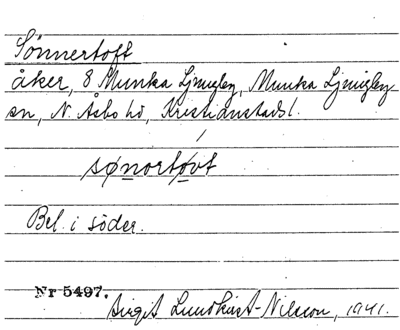 Sönnertoft
åker, 8 Munka Ljungby, Munka Ljungby
sn, N. Åsbo hd, Kristianstads l.
sønortovt
Bel. i söder.
Nr 5497.
Birgit Lundkvist-Nilsson, 1941.